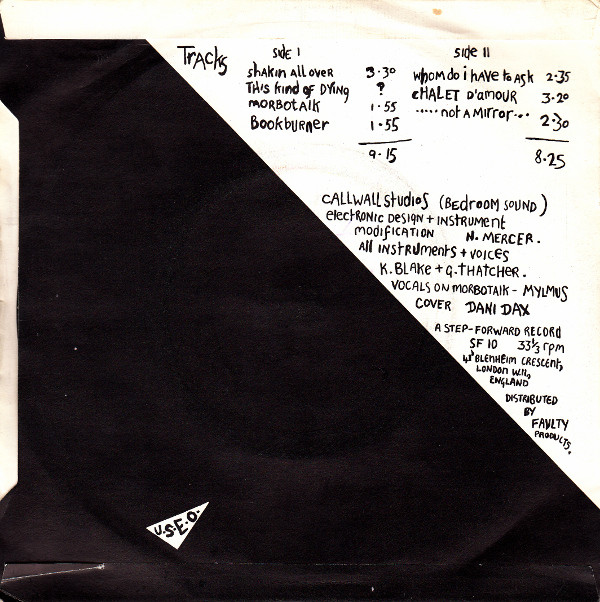 Tracks
SIDE I
shakin all over 3·30
THIS KIND OF DYING ?
MORBOTALK 1·55
BOOKBURNER 1·55
9·15
SIDE II
whom do i have to ask 2·35
CHALET D'AMOUR 3·20
.....not a MIRROR... 2·30
8·25
CALLWALL STUDIOS (BEDROOM SOUND)
ELECTRONIC DESIGN + INSTRUMENT
MODIFICATION N. MERCER.
All INSTRUMENTS + VOICES
K. BLAKE + G. THATCHER.
VOCALS ON MORBOTALK - MYLMUS
COVER DANI DAX
A STEP-FORWARD RECORD
SF 10 33⅓ rpm
BLENHEIM CRESCENT,
LONDON W.11,
ENGLAND
DISTRIBUTED
BY
FAULTY
PRODUCTS.
U.S.E.O.